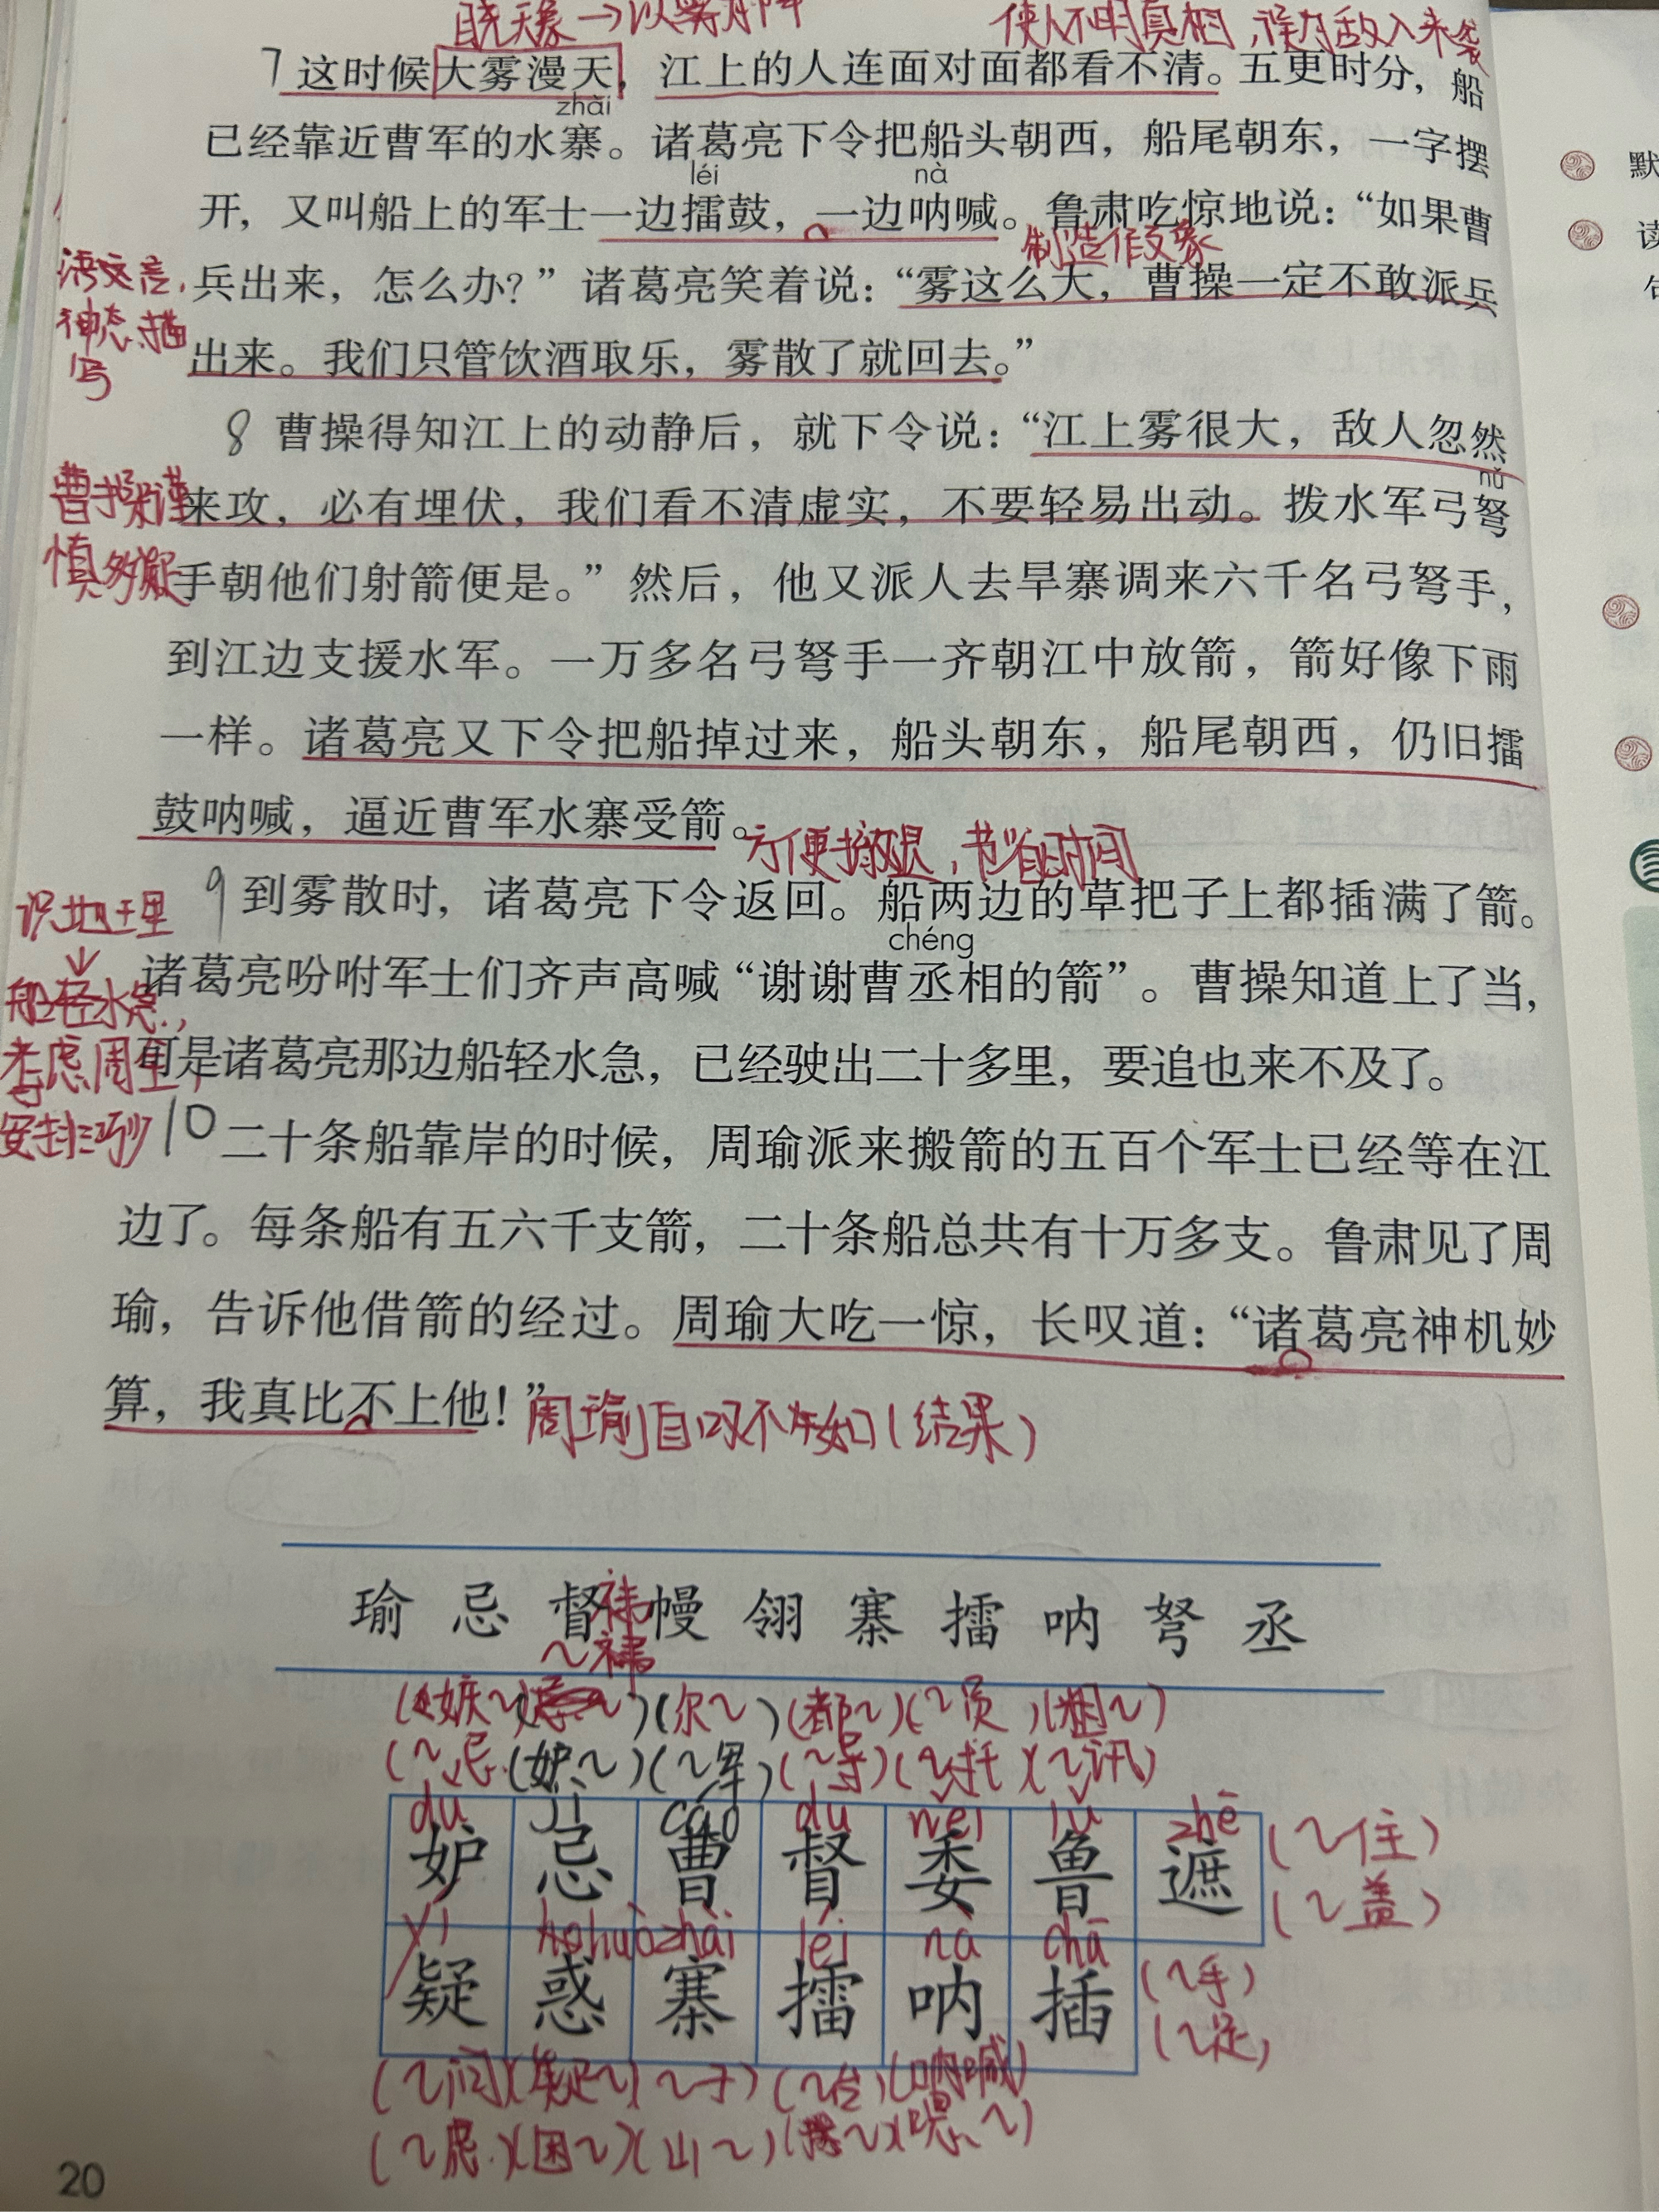 使人不明真相，误为敌人来袭
7 这时候大雾漫天，江上的人连面对面都看不清。五更时分，船
zhài
已经靠近曹军的水寨。诸葛亮下令把船头朝西，船尾朝东，一字摆
léi nà
开，又叫船上的军士一边擂鼓，一边呐喊。鲁肃吃惊地说：“如果曹
制造假象
兵出来，怎么办？”诸葛亮笑着说：“雾这么大，曹操一定不敢派兵
神态描
写
出来。我们只管饮酒取乐，雾散了就回去。”
8 曹操得知江上的动静后，就下令说：“江上雾很大，敌人忽然
nǔ
曹操谨
来攻，必有埋伏，我们看不清虚实，不要轻易出动。拨水军弓弩
慎多疑
手朝他们射箭便是。”然后，他又派人去旱寨调来六千名弓弩手，
到江边支援水军。一万多名弓弩手一齐朝江中放箭，箭好像下雨
一样。诸葛亮又下令把船掉过来，船头朝东，船尾朝西，仍旧擂
鼓呐喊，逼近曹军水寨受箭。
方便撤退，节省时间
识地理
9 到雾散时，诸葛亮下令返回。船两边的草把子上都插满了箭。
chéng
船轻水急，
诸葛亮吩咐军士们齐声高喊“谢谢曹丞相的箭”。曹操知道上了当，
考虑周全，
可是诸葛亮那边船轻水急，已经驶出二十多里，要追也来不及了。
安排巧妙
10 二十条船靠岸的时候，周瑜派来搬箭的五百个军士已经等在江
边了。每条船有五六千支箭，二十条船总共有十万多支。鲁肃见了周
瑜，告诉他借箭的经过。周瑜大吃一惊，长叹道：“诸葛亮神机妙
算，我真比不上他！”
周瑜自叹不如（结果）
瑜 忌 督 幔 翎 寨 擂 呐 弩 丞
(嫉~) (尔~) (都~) (~员) (粗~)
(~忌) (妒~) (~军) (~导) (~托) (~讯)
dù jì cáo dū wěi lǔ zhē
妒 忌 曹 督 委 鲁 遮
(~住)
(~盖)
yí huò zhài léi nà chā
疑 惑 寨 擂 呐 插
(~手)
(~足)
(~问) (疑~) (~子) (~台) (呐喊)
(~虑) (困~) (山~)
20
默
读
句